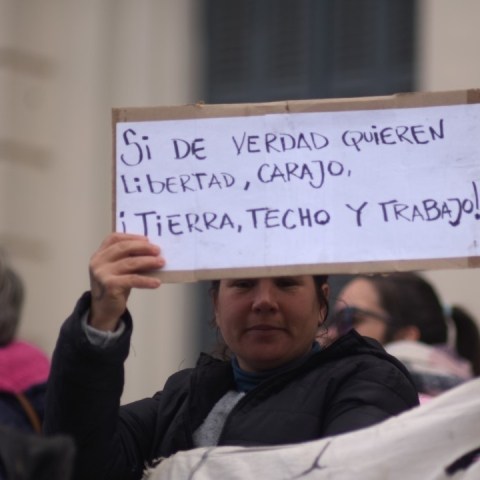 Si DE VERDAD QUIEREN
LiBERTAD, CARAJO,
¡TIERRA, TECHO Y TRABAJO!